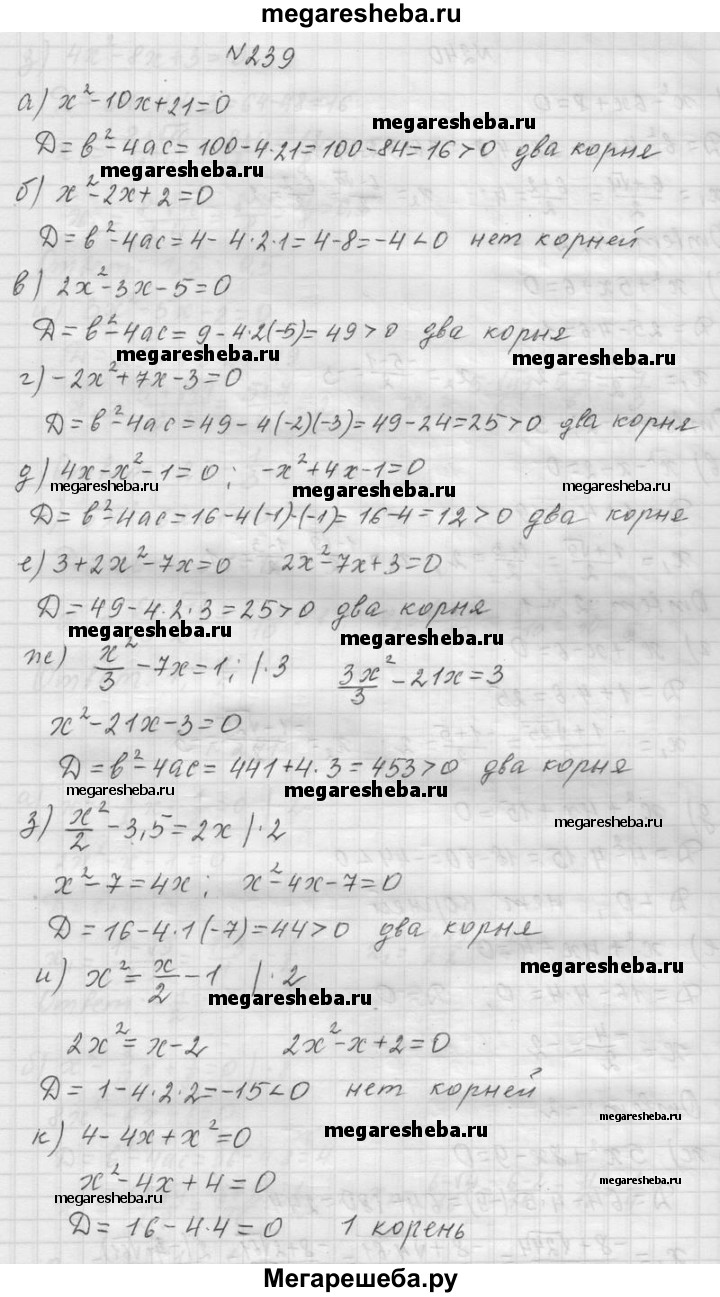 megaresheba.ru
N239
а) x²-10x+21=0
megaresheba.ru
Д=в²-4ac=100-4·21=100-84=16>0 два корня
megaresheba.ru
б) x²-2x+2=0
Д=в²-4ac=4-4·2·1=4-8=-4<0 нет корней
в) 2x²-3x-5=0
Д=в²-4ac=9-4·2(-5)=49>0 два корня
megaresheba.ru megaresheba.ru
г) -2x²+7x-3=0
Д=в²-4ac=49-4(-2)(-3)=49-24=25>0 два корня
д) 4x-x²-1=0; -x²+4x-1=0
megaresheba.ru megaresheba.ru megaresheba.ru
Д=в²-4ac=16-4(-1)·(-1)=16-4=12>0 два корня
е) 3+2x²-7x=0 2x²-7x+3=0
Д=49-4·2·3=25>0 два корня
megaresheba.ru megaresheba.ru
ж) x²/3-7x=1; |·3 3x²/3-21x=3
x²-21x-3=0
Д=в²-4ac=441+4·3=453>0 два корня
megaresheba.ru megaresheba.ru
з) x²/2-3,5=2x |·2
megaresheba.ru
x²-7=4x; x²-4x-7=0
Д=16-4·1(-7)=44>0 два корня
megaresheba.ru
и) x²=x/2-1 |·2
megaresheba.ru
2x²=x-2 2x²-x+2=0
Д=1-4·2·2=-15<0 нет корней
megaresheba.ru
к) 4-4x+x²=0
megaresheba.ru
x²-4x+4=0
megaresheba.ru megaresheba.ru
Д=16-4·4=0 1 корень
Мегарешеба.ру